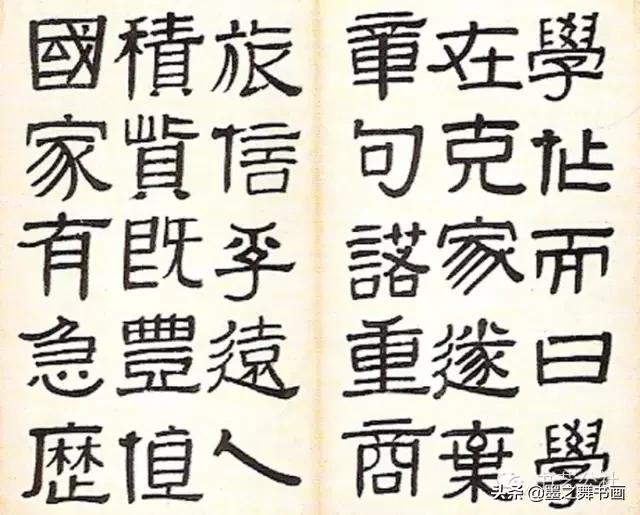 學而曰學
在克家遂棄
章句諾重商
旅信孚遠人
積貲既豐值
國家有急歷
头条 @墨之舞书画